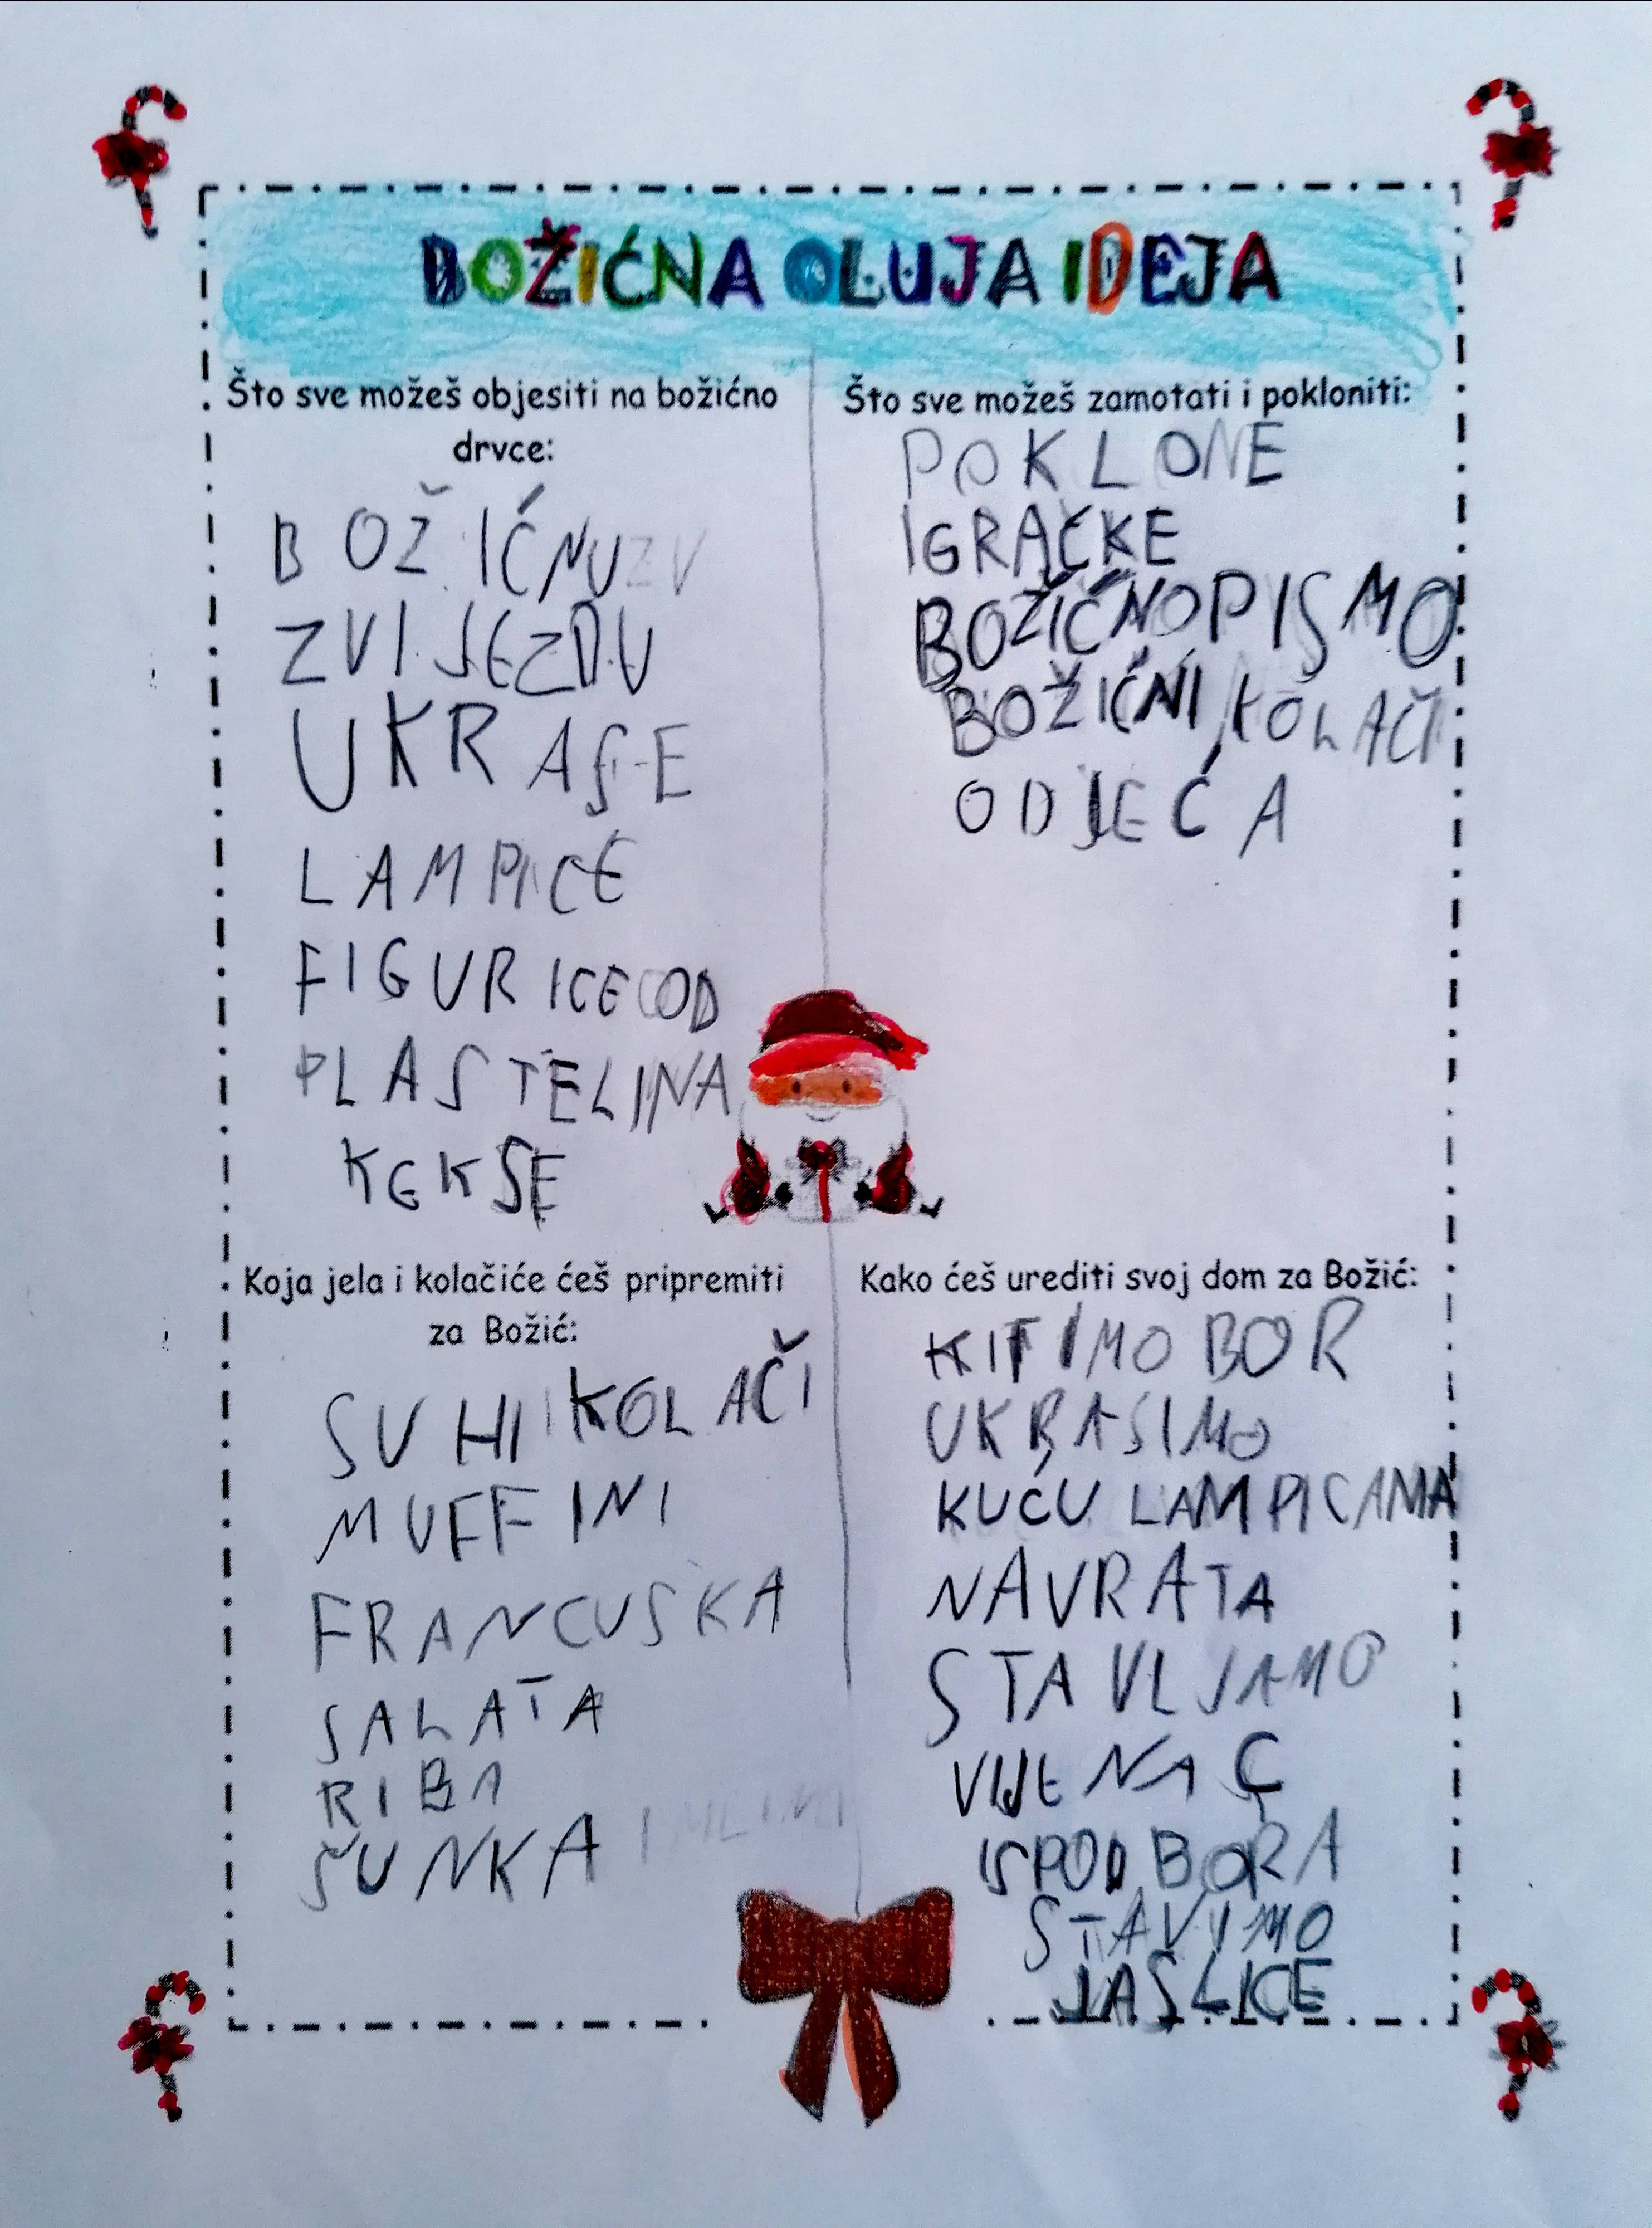 BOŽIĆNA OLUJA IDEJA
Što sve možeš objesiti na božićno
drvce:
BOŽIĆNU ZV
ZVIJEZDU
UKRASE
LAMPICE
FIGURICE OD
PLASTELINA
KEKSE
Što sve možeš zamotati i pokloniti:
POKLONE
IGRAČKE
BOŽIČNO PISMO
BOŽIĆNI KOLAČI
ODJEĆA
Koja jela i kolačiće ćeš pripremiti
za Božić:
SUHI KOLAČI
MUFFINI
FRANCUSKA
SALATA
RIBA
ŠUNKA I MLINCI
Kako ćeš urediti svoj dom za Božić:
KITIMO BOR
UKRASIMO
KUĆU LAMPICAMA
NA VRATA
STAVLJAMO
VIJENAC
ISPOD BORA
STAVIMO
JASLICE